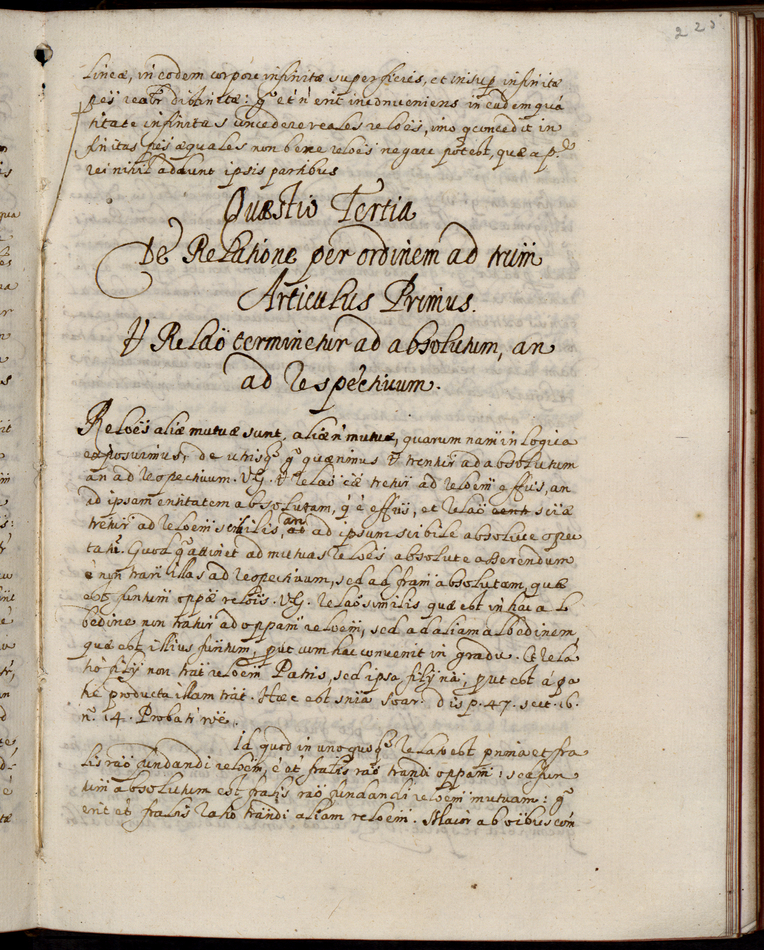 225
lineæ, in eodem corpore infinitæ superficies, et insup infinitæ
ptes realr distinctæ: gº et n erit inconveniens in eadem quã
titate infinitas concedere reales reloes, imo q concedit in
finitas ptes æquales non bene reloes negare potest, quæ a p.te
rei nihil addunt ipsis partibus
Quæstio Tertia
De Relatione per ordinem ad trum
Articulus Primus.
V Relao terminetur ad absolutum, an
ad respectivum.
Reloes aliæ mutuæ sunt, aliæ ñ mutuæ, quarum nam in Logica
exposuimus, de utrisq gº quærimus V trentur ad absolutum
an ad respectivum. V.G. V relao cæ tretur ad reloem effūs, an
ad ipsam entitatem absolutam, q ē effūs, et relao sciæ
tretur ad reloem scibilis, an ad ipsum scibile absolute spec
tatū. Quod attinet ad mutuas reloes absolute asserendum
ē non trari illas ad respectivum, sed ad fram absolutam, quæ
est funtum oppæ relois. V.G. relao similis quæ est in hac al
bedine non tratur ad oppam reloem, sed ad aliam albedinem,
quæ est illius funtum, put cum hac convenit in gradu. Et rela
ho filij non trat reloem Patris, sed ipsa filij nā, put est a pa
tre producta illam trat. Hæc est snia Soar. disp. 47. sect. 16.
nº. 14. Probatr roe.
Id quod in unoquoq relato est prima et fra
lis rao fundandi reloem, ē et fralis rao trandi oppam: sed fun
tum absolutum est fralis rao fundandi reloem mutuam: gº
erit et fralis ratio trandi aliam reloem. Maior ab oibus con